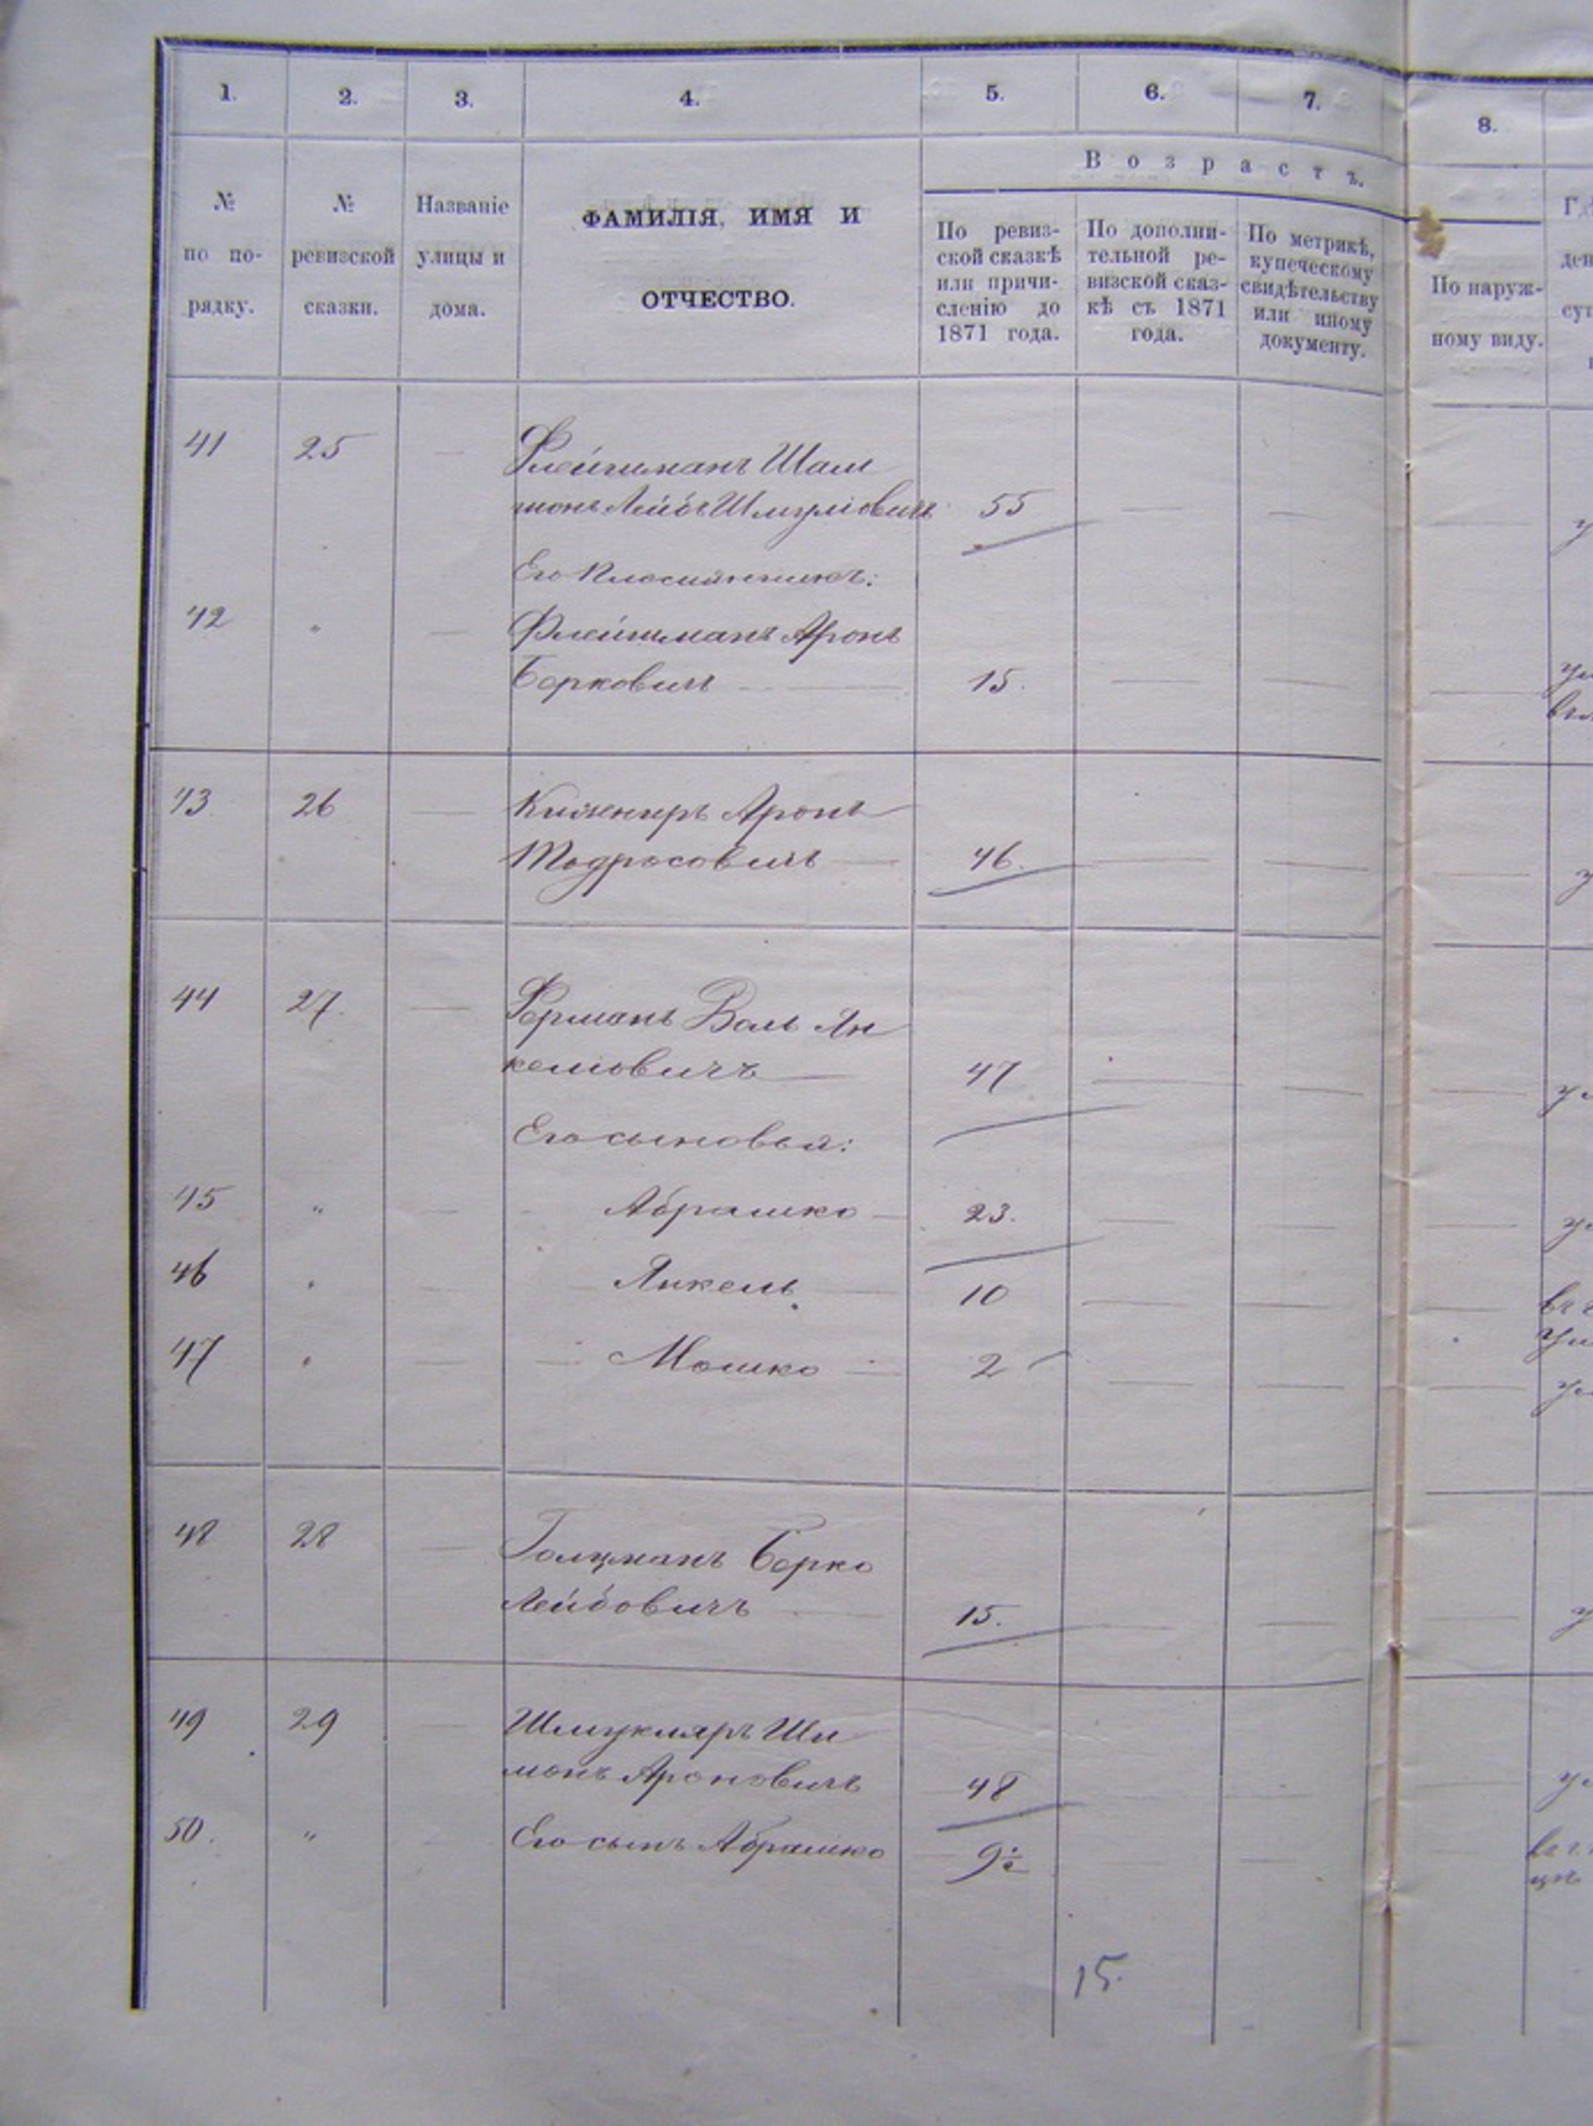 1. 2. 3. 4. 5. 6. 7. 8.
В о з р а с т ъ.
№ по по-рядку.
№ ревизской сказки.
Названіе улицы и дома.
ФАМИЛІЯ, ИМЯ И
ОТЧЕСТВО.
По ревиз-
ской сказкѣ
или причи-
сленію до
1871 года.
По дополни-
тельной ре-
визской сказ-
кѣ съ 1871
года.
По метрикѣ,
купеческому
свидѣтельству
или иному
документу.
По наруж-
ному виду.
41 25 — Флейшманъ Шам
шонъ Лейбъ Шмуліовичъ 55 — —
Его Племянникъ:
42 " — Флейшманъ Аронъ
Берковичъ — 15. — —
43 26 — Аронъ
Тодросовичъ — 46. — —
44 27. — Ферманъ Волъ Ян
келіовичъ — 47 — —
Его сыновья:
45 " — Абрашко — 23. — —
46 " — Янкель — 10 — —
47 " — Мошко — 2 — —
48 28 — Голцманъ Берко
Лейбовичъ — 15. — —
49 29 — Шмукляръ Ши
монъ Ароновичъ 48 — —
50. " — Его сынъ Абрашко 9½ — —
15.